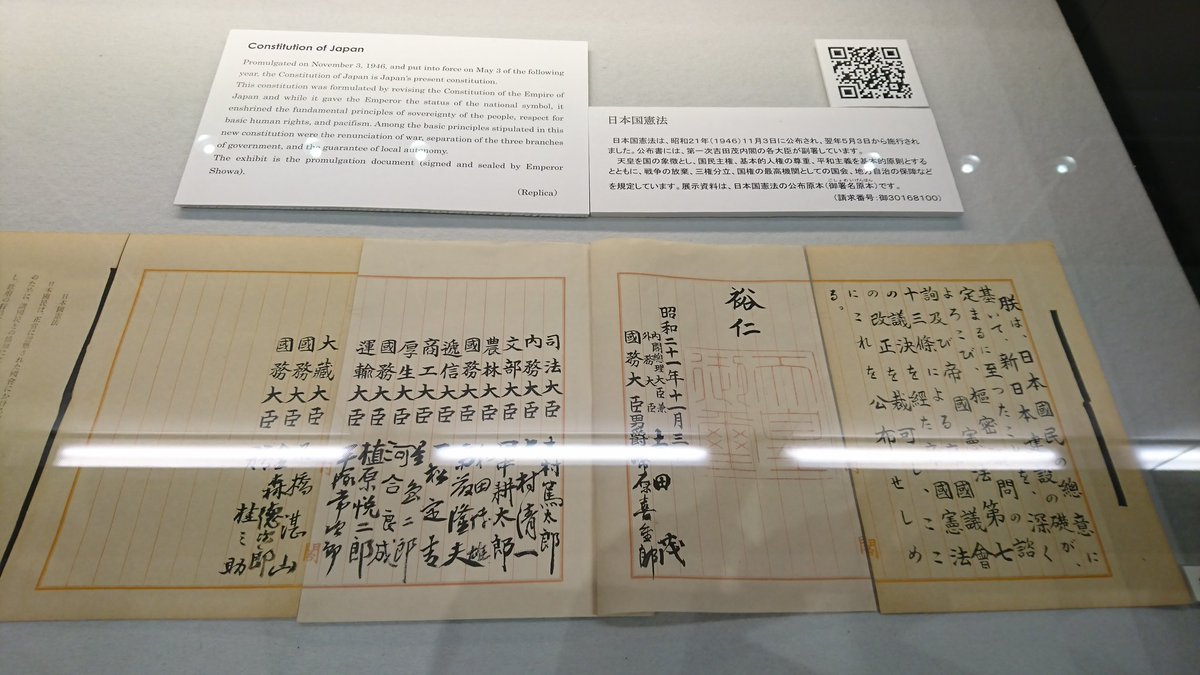 Constitution of Japan
Promulgated on November 3, 1946, and put into force on May 3 of the following
year, the Constitution of Japan is Japan's present constitution.
This constitution was formulated by revising the Constitution of the Empire of
Japan and while it gave the Emperor the status of the national symbol, it
enshrined the fundamental principles of sovereignty of the people, respect for
basic human rights, and pacifism. Among the basic principles stipulated in this
new constitution were the renunciation of war, separation of the three branches
of government, and the guarantee of local autonomy.
The exhibit is the promulgation document (signed and sealed by Emperor
Showa).
(Replica)
日本国憲法
日本国憲法は、昭和21年(1946)11月3日に公布され、翌年5月3日から施行され
ました。公布書には、第一次吉田茂内閣の各大臣が副署しています。
天皇を国の象徴とし、国民主権、基本的人権の尊重、平和主義を基本的原則とする
とともに、戦争の放棄、三権分立、国権の最高機関としての国会、地方自治の保障など
を規定しています。展示資料は、日本国憲法の公布原本(御署名原本)です。
ごしょめいげんぽん
(請求番号:御30168100)
朕は、日本國民の總意に
基いて、新日本建設の礎が、
定まるに至つたことを、深く
よろこび、樞密顧問の諮
詢及び帝國憲法第七
十三條による帝國議會
の議決を経た帝國憲法
の改正を裁可し、ここ
にこれを公布せしめ
る。
裕仁
天皇御璽
昭和二十一年十一月三
内閣總理大臣兼
外務大臣 吉田茂
國務大臣 男爵 幣原喜重郎
司法大臣 木村篤太郎
内務大臣 大村清一
文部大臣 田中耕太郎
農林大臣 和田博雄
國務大臣 斎藤隆夫
遞信大臣 一松定吉
商工大臣 星島二郎
厚生大臣 河合良成
國務大臣 植原悦二郎
運輸大臣 平塚常次郎
大藏大臣 石橋湛山
國務大臣 金森德次郎
國務大臣 桂之助
日本國憲法
日本國民は、正當に選擧された國會に